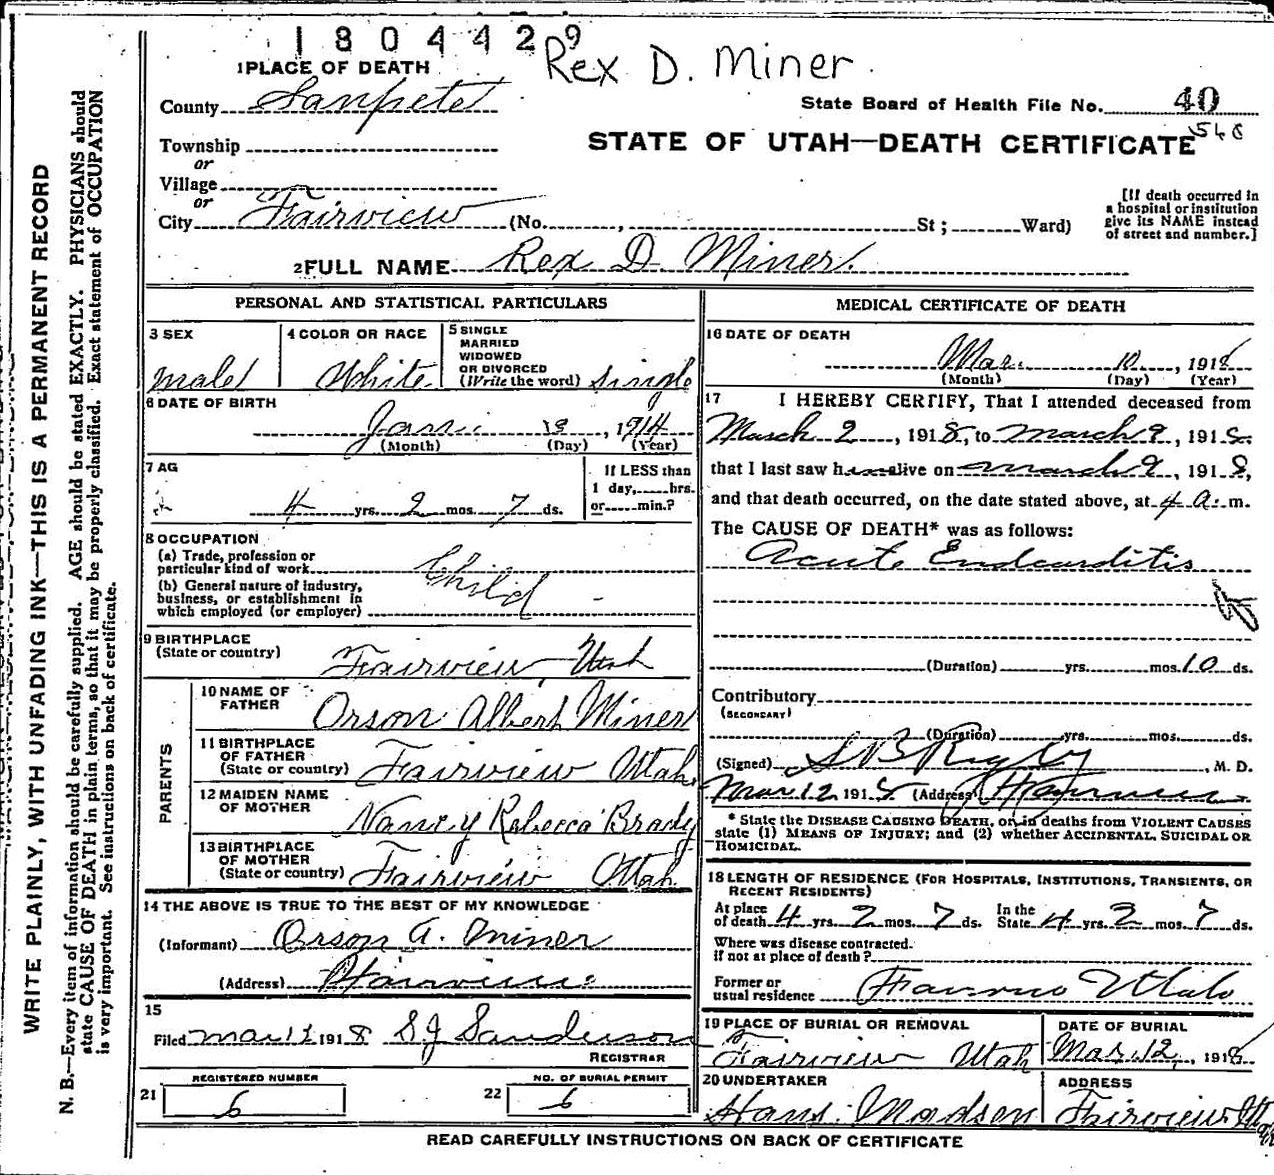 1804429
Rex D. Miner
1 PLACE OF DEATH
County Sanpete
State Board of Health File No. 40
548
Township
or
Village
or
City Fairview (No. , St ; Ward)
STATE OF UTAH—DEATH CERTIFICATE
[If death occurred in
a hospital or institution
give its NAME instead
of street and number.]
2 FULL NAME Rex D. Miner.
PERSONAL AND STATISTICAL PARTICULARS
3 SEX
male
4 COLOR OR RACE
White
5 SINGLE
MARRIED
WIDOWED
OR DIVORCED
(Write the word) single
6 DATE OF BIRTH
Jan. 3, 1914
(Month) (Day) (Year)
7 AG
4 yrs. 2 mos. 7 ds.
If LESS than
1 day, hrs.
or min.?
8 OCCUPATION
(a) Trade, profession or
particular kind of work Child
(b) General nature of industry,
business, or establishment in
which employed (or employer)
9 BIRTHPLACE
(State or country) Fairview, Utah
PARENTS
10 NAME OF
FATHER Orson Albert Miner
11 BIRTHPLACE
OF FATHER
(State or country) Fairview Utah.
12 MAIDEN NAME
OF MOTHER Nancy Rebecca Brady
13 BIRTHPLACE
OF MOTHER
(State or country) Fairview Utah
14 THE ABOVE IS TRUE TO THE BEST OF MY KNOWLEDGE
(Informant) Orson A. Miner
(Address) Fairview
15
Filed Mar 12 1918 S J Sanderson
REGISTRAR
REGISTERED NUMBER
21 6
NO. OF BURIAL PERMIT
22 6
MEDICAL CERTIFICATE OF DEATH
16 DATE OF DEATH
Mar. 10, 1918
(Month) (Day) (Year)
17 I HEREBY CERTIFY, That I attended deceased from
March 2, 1918, to March 9, 1918
that I last saw him alive on March 9, 1918,
and that death occurred, on the date stated above, at 4 a. m.
The CAUSE OF DEATH* was as follows:
Acute Endcarditis
(Duration) yrs. mos. 10 ds.
Contributory
(SECONDARY)
(Duration) yrs. mos. ds.
(Signed) S B Rigby, M. D.
Mar. 12 1918 (Address) Fairview
* State the DISEASE CAUSING DEATH, or in deaths from VIOLENT CAUSES
state (1) MEANS OF INJURY; and (2) whether ACCIDENTAL, SUICIDAL OR
HOMICIDAL.
18 LENGTH OF RESIDENCE (FOR HOSPITALS, INSTITUTIONS, TRANSIENTS, OR
RECENT RESIDENTS)
At place
of death 4 yrs. 2 mos. 7 ds.
In the
State 4 yrs. 2 mos. 7 ds.
Where was disease contracted.
If not at place of death?
Former or
usual residence Fairview Utah
19 PLACE OF BURIAL OR REMOVAL
Fairview Utah
DATE OF BURIAL
Mar. 12, 1918
20 UNDERTAKER
Hans Madsen
ADDRESS
Fairview Utah
READ CAREFULLY INSTRUCTIONS ON BACK OF CERTIFICATE
WRITE PLAINLY, WITH UNFADING INK—THIS IS A PERMANENT RECORD
N. B.—Every item of information should be carefully supplied. AGE should be stated EXACTLY. PHYSICIANS should
state CAUSE OF DEATH in plain terms, so that it may be properly classified. Exact statement of OCCUPATION
is very important. See instructions on back of certificate.